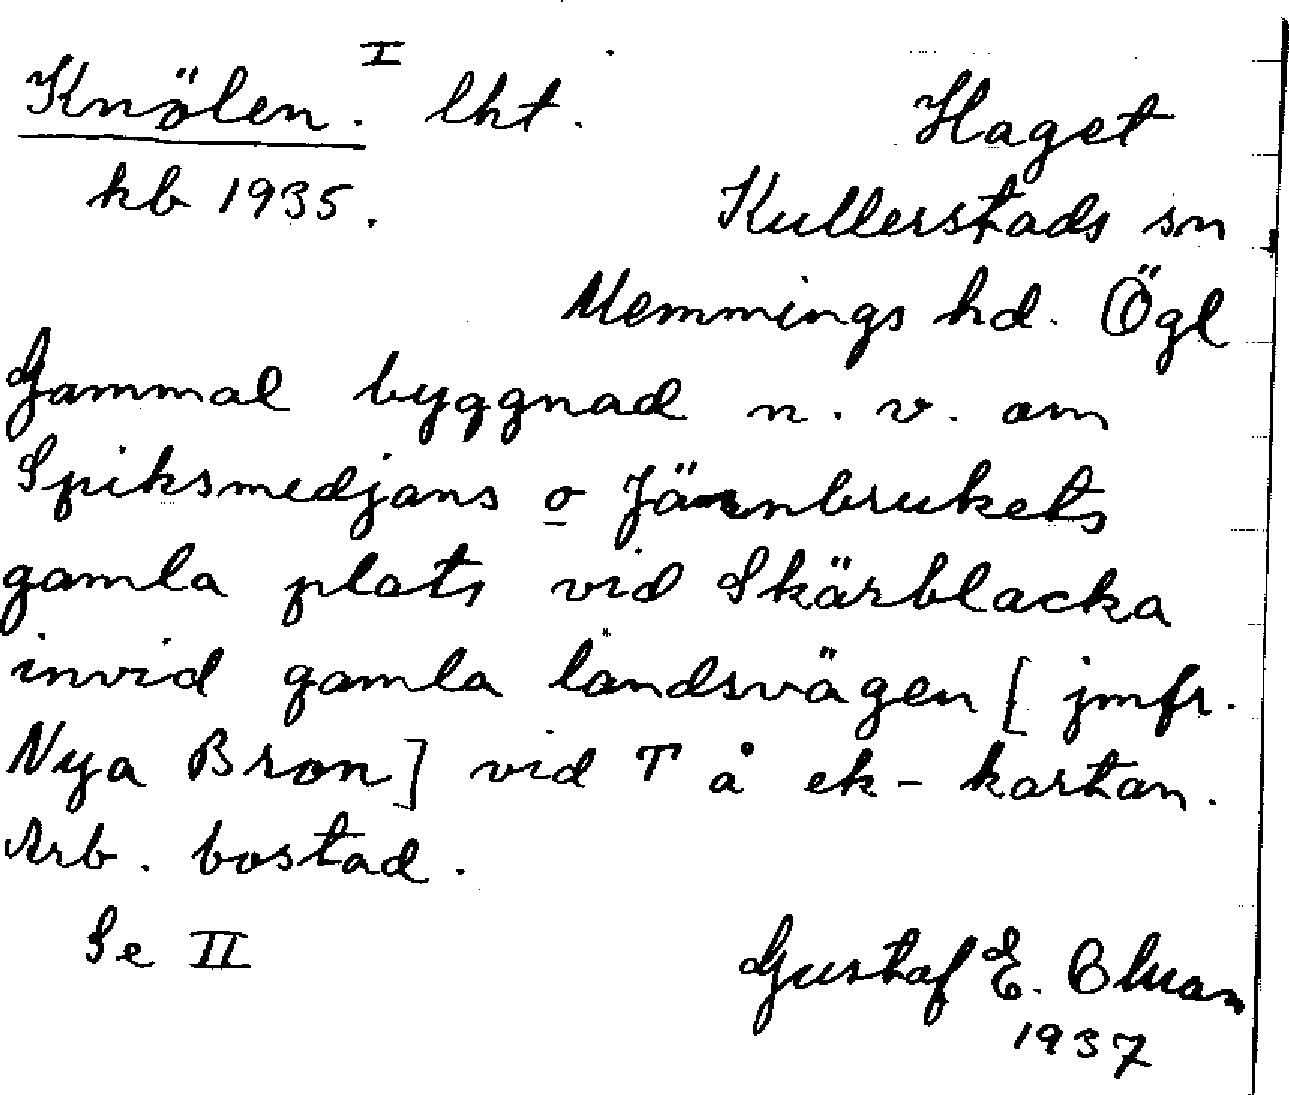 Knölen. I lht. Haget
kb 1935. Kullerstads sn
Memmings hd. Ögl
Gammal byggnad n. v. om
Spiksmedjans o Järnbrukets
gamla plats vid Skärblacka
invid gamla landsvägen [ jmfr.
Nya Bron] vid T å ek-kartan.
Arb. bostad.
Se II
Gustaf E.
1937